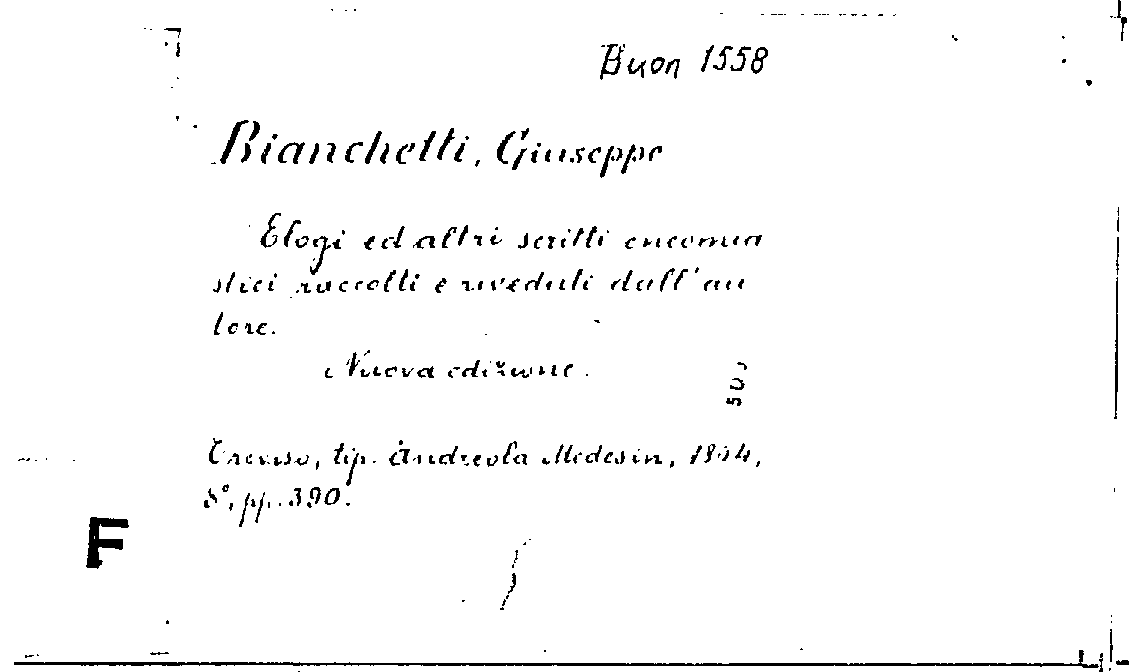 Buon 1558
Bianchetti, Giuseppe
Elogi ed altri scritti encomia
stici raccolti e riveduti dall'au
tore.
Nuova edizione.
500
Treviso, tip. Andreola Medesin, 1844,
8°, pp. 390.
F